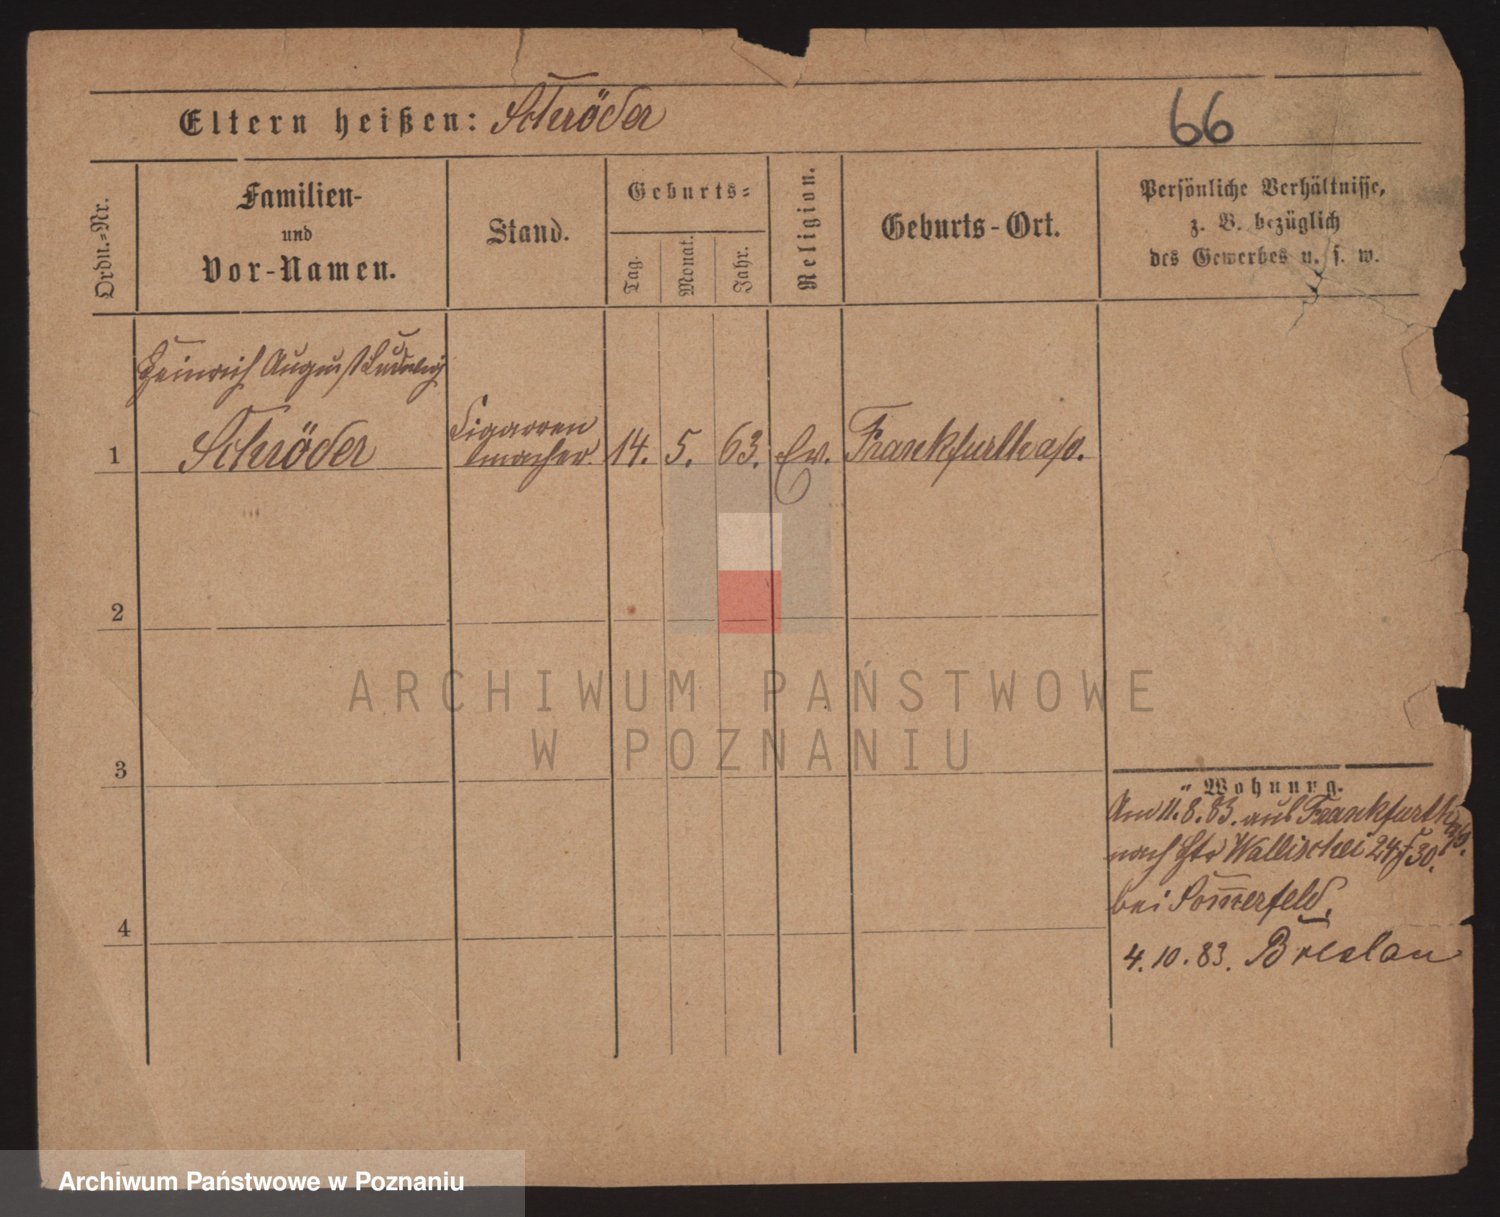 Eltern heißen: Schröder
66
Ordn.-Nr.
Familien-
und
Vor-Namen.
Stand.
Geburts-
Tag.
Monat.
Jahr.
Religion.
Geburts-Ort.
Persönliche Verhältnisse,
z. B. bezüglich
des Gewerbes u. s. w.
Heinrich August Ludwig
1 Schröder
Cigarren
macher.
14. 5. 63. Ev. Frankfurth a/o.
2
3
4
Wohnung.
Am 11.8.83. aus Frankfurth a/o.
nach Wallischei
bei Som̅erfeld.
4.10.83. Breslau
ARCHIWUM PAŃSTWOWE
W POZNANIU
Archiwum Państwowe w Poznaniu